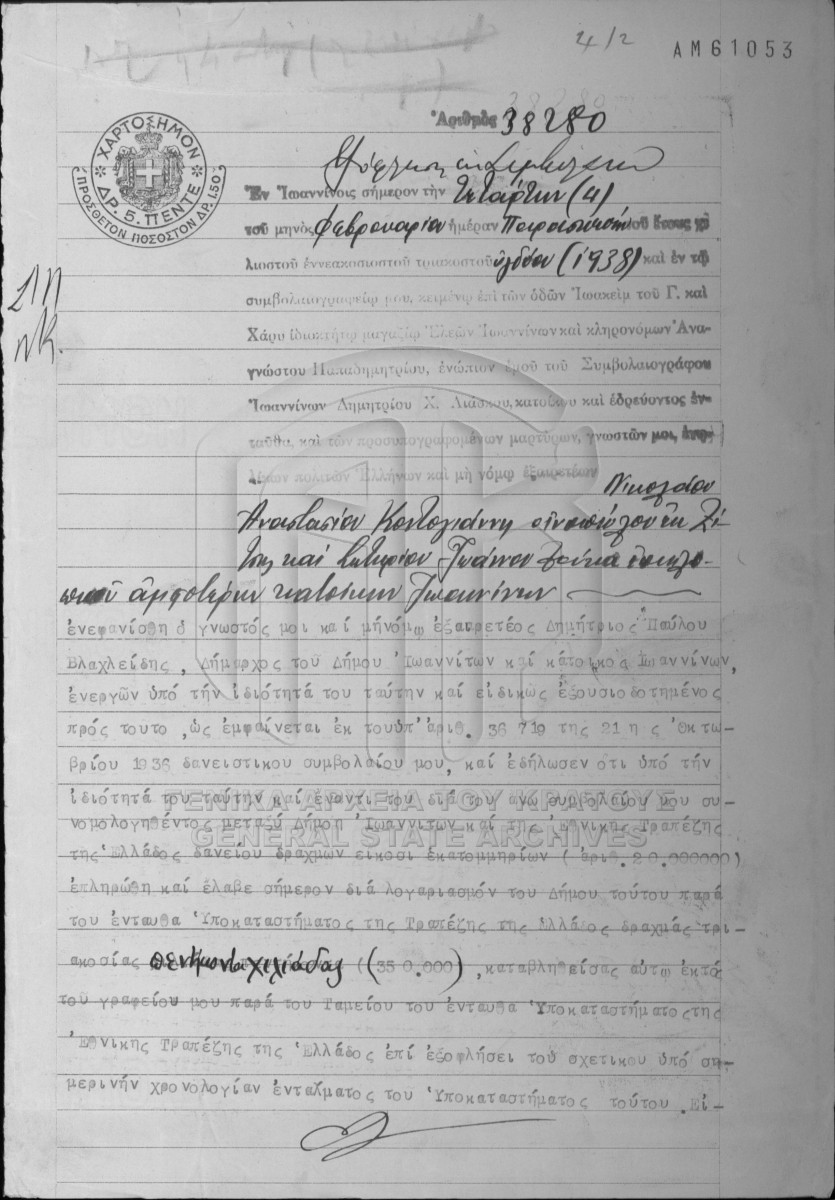 4/2
ΑΜ61053
Ἀριθμὸς 38280
ΧΑΡΤΟΣΗΜΟΝ
ΔΡ. 5. ΠΕΝΤΕ
ΠΡΟΣΘΕΤΟΝ ΠΟΣΟΣΤΟΝ ΔΡ. 1.50
Ἐν Ἰωαννίνοις σήμερον τὴν τετάρτην (4)
τοῦ μηνὸς Φεβρουαρίου ἡμέραν Παρασκευὴν τοῦ ἔτους χι-
λιοστοῦ ἐννεακοσιοστοῦ τριακοστοῦ ὀγδόου (1938) καὶ ἐν τῷ
συμβολαιογραφείῳ μου, κειμένῳ ἐπὶ τῶν ὁδῶν Ἰωακεὶμ τοῦ Γ. καὶ
Χάρυ ἰδιοκτήτῳ μαγαζίῳ Ἐλεῶν Ἰωαννίνων καὶ κληρονόμων Ἀνα-
γνώστου Παπαδημητρίου, ἐνώπιον ἐμοῦ τοῦ Συμβολαιογράφου
Ἰωαννίνων Δημητρίου Χ. Λιάσκου, κατοίκου καὶ ἑδρεύοντος ἐν-
ταῦθα, καὶ τῶν προσυπογραφομένων μαρτύρων, γνωστῶν μοι, ἐνη-
λίκων πολιτῶν Ἑλλήνων καὶ μὴ νόμῳ ἐξαιρετέων Νικολάου
Ἀναστασίου Κοντογιάννη οἰνοπώλου ἐκ Ζί-
τσης καὶ Σωτηρίου Ἰωάννου
ἀμφοτέρων κατοίκων Ἰωαννίνων
ἐνεφανίσθη ὁ γνωστός μοι καί μήνόμῳ ἐξαιρετέος Δημήτριος Παύλου
Βλαχλείδης, Δήμαρχος του Δήμου Ἰωαννίτων καί κάτοικος Ἰωαννίνων,
ἐνεργῶν ὑπό τήν ἰδιότητά του ταύτην καί εἰδικῶς ἐξουσιοδοτημένος
πρός τουτο, ὡς ἐμφαίνεται ἐκ τουὑπ' ἀριθ. 36 719 της 21 η ς Ὀκτω-
βρίου 1936 δανειστικου συμβολαίου μου, καί ἐδήλωσεν οτι ὑπό τήν
ἰδιότητά του ταύτην καί ἔναντι του διά του ἀνω συμβολαίου μου συ-
νομολογηθέντος μεταξύ Δήμου Ἰωαννιτων καί της Ἐθνικης Τραπέζης
της Ἑλλάδος δανείου δραχμων εικοσι ἑκατομμηρίων ( ἀριθ. 20.000000)
ἐπληρώθη καί ἔλαβε σήμερον διά λογαριασμόν του Δήμου τούτου παρά
του ἐνταυθα Ὑποκαταστήματος της Τραπέζης της Ἑλλάδος δραχμάς τρι-
ακοσίας πεντήκοντα χιλιάδας (350.000), καταβληθείσας αὐτω ἐκτό
του γραφείου μου παρά του Ταμείου του ἐνταυθα Ὑποκαταστήματος της
Ἐθνικης Τραπέζης της Ἑλλάδος ἐπί ἐξοφλήσει του σχετικου ὑπό ση-
μερινήν χρονολογίαν ἐντάλματος του Ὑποκαταστήματος τούτου. Εἰ-
ΓΕΝΙΚΑ ΑΡΧΕΙΑ ΤΟΥ ΚΡΑΤΟΥΣ
GENERAL STATE ARCHIVES